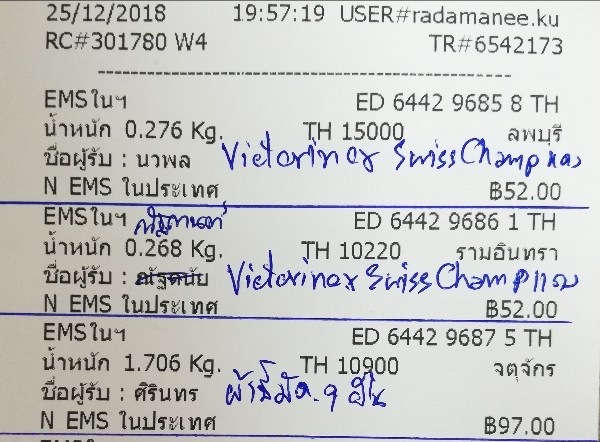 25/12/2018 19:57:19 USER#radamanee.ku
RC#301780 W4 TR#6542173
EMSในฯ ED 6442 9685 8 TH
น้ำหนัก 0.276 Kg. TH 15000 ลพบุรี
ชื่อผู้รับ : นวพล Victorinox SwissChamp แดง
N EMS ในประเทศ ฿52.00
EMSในฯ ED 6442 9686 1 TH
น้ำหนัก 0.268 Kg. TH 10220 รามอินทรา
ชื่อผู้รับ : ณัฐดนัย Victorinox SwissChamp แดง
N EMS ในประเทศ ฿52.00
EMSในฯ ED 6442 9687 5 TH
น้ำหนัก 1.706 Kg. TH 10900 จตุจักร
ชื่อผู้รับ : ศิรินทร
N EMS ในประเทศ ฿97.00